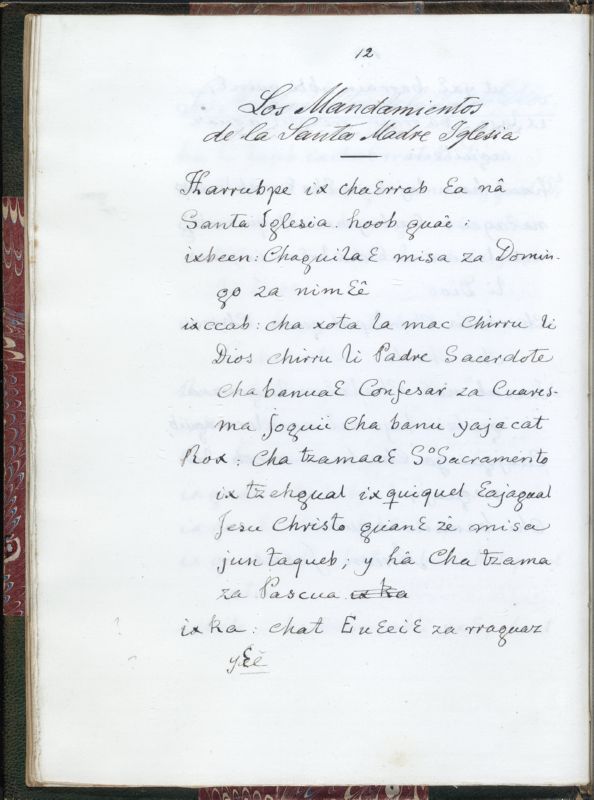 12
Los Mandamientos
de la Santa Madre Iglesia
Harrubpe ix chaƐrrab Ɛa nâ
Santa Iglesia. hoob guaê:
ixbeen: ChaguilaƐ misa za Domin-
go za nimƐê
ixccab: cha xota la mac Chirru li
Dios chirru li Padre Sacerdote
ChabanuaƐ Confesar za Cuares-
ma Joguii Cha banu yajacat
Rox: Cha tzamaaƐ Sº Sacramento
ix tzehgual ixquiquel Ɛajagual
Jesu Christo guanƐ zê misa
juntaqueb; y hâ Cha tzama
za Pascua ix ka
ix ka: chat EuƐeiƐ za rraguaz
yƐê